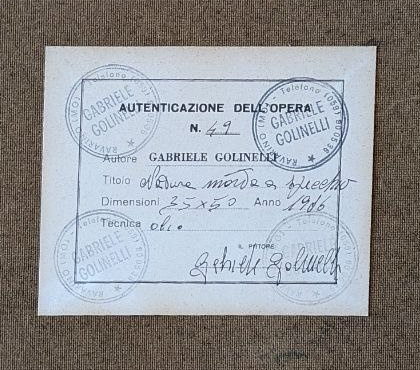 AUTENTICAZIONE DELL'OPERA
N. 49
Autore GABRIELE GOLINELLI
Titolo Natura morta a specchio
Dimensioni 35x50 Anno 1986
Tecnica olio
IL PITTORE
Gabriele Golinelli
GABRIELE GOLINELLI
RAVARINO (MO) - Telefono (059)
GABRIELE GOLINELLI
RAVARINO (MO) - Telefono (059)
GABRIELE GOLINELLI
RAVARINO (MO) - Telefono
GABRIELE GOLINELLI